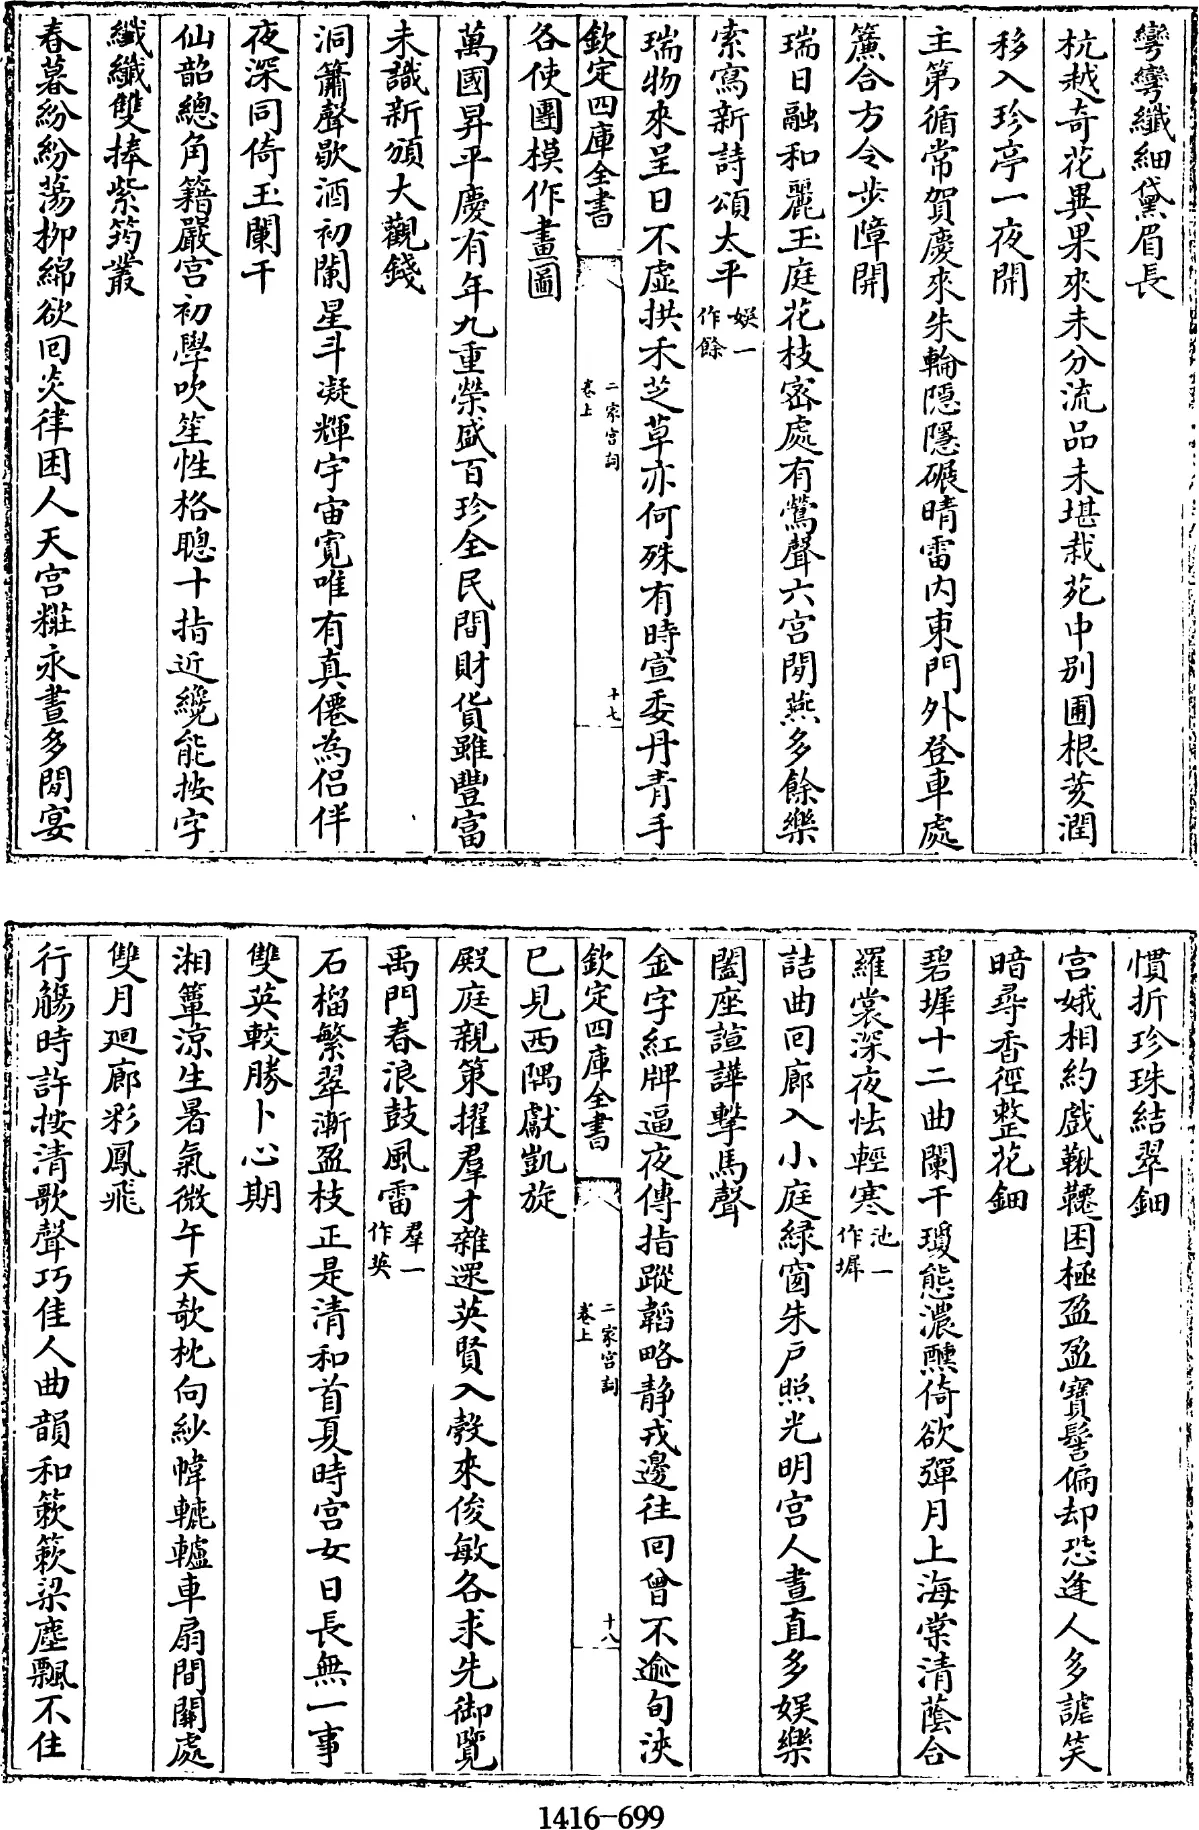 彎彎纖細黛眉長
杭越奇花異果來未分流品未堪栽苑中别圃根荄潤
移入珍亭一夜開
主第循常賀慶來朱輪隱隱碾晴雷内東門外登車處
簾合方令步障開
瑞日融和麗玉庭花枝密處有鶯聲六宫閒燕多餘樂
索寫新詩頌太平娱一作餘
瑞物來呈日不虚拱禾芝草亦何殊有時宣委丹青手
欽定四庫全書
二家宫詞
卷上
十七
各使團模作畫圖
萬國昇平慶有年九重榮盛百珍全民間財貨雖豐富
未識新頒大觀錢
洞簫聲歇酒初闌星斗凝輝宇宙寛唯有真僊為侣伴
夜深同倚玉闌干
仙韶總角籍嚴宫初學吹笙性格聰十指近纔能按字
纖纖雙捧紫筠叢
春暮紛紛蕩柳綿欲回炎律困人天宫糚永晝多閒宴
慣折珍珠結翠鈿
宫娥相約戲鞦韆困極盈盈寶髻偏却恐逢人多謔笑
暗尋香徑整花鈿
碧墀十二曲闌干瓊態濃醺倚欲彈月上海棠清蔭合
羅裳深夜怯輕寒池一作墀
詰曲回廊入小庭緑窗朱户照光明宫人晝直多娱樂
闔座諠譁擊馬聲
金字紅牌逼夜傳指蹤韜略静戎邊往回曾不逾旬浹
欽定四庫全書
二家宫詞
卷上
十八
已見西隅獻凱旋
殿庭親策擢羣才雜遝英賢入彀來俊敏各求先御覽
禹門春浪鼓風雷羣一作英
石榴繁翠漸盈枝正是清和首夏時宫女日長無一事
雙英較勝卜心期
湘簟涼生暑氣微午天欹枕向紗幃轆轤車扇間關處
雙月廻廊彩鳳飛
行觴時許按清歌聲巧佳人曲韻和簌簌梁塵飄不住
1416-699